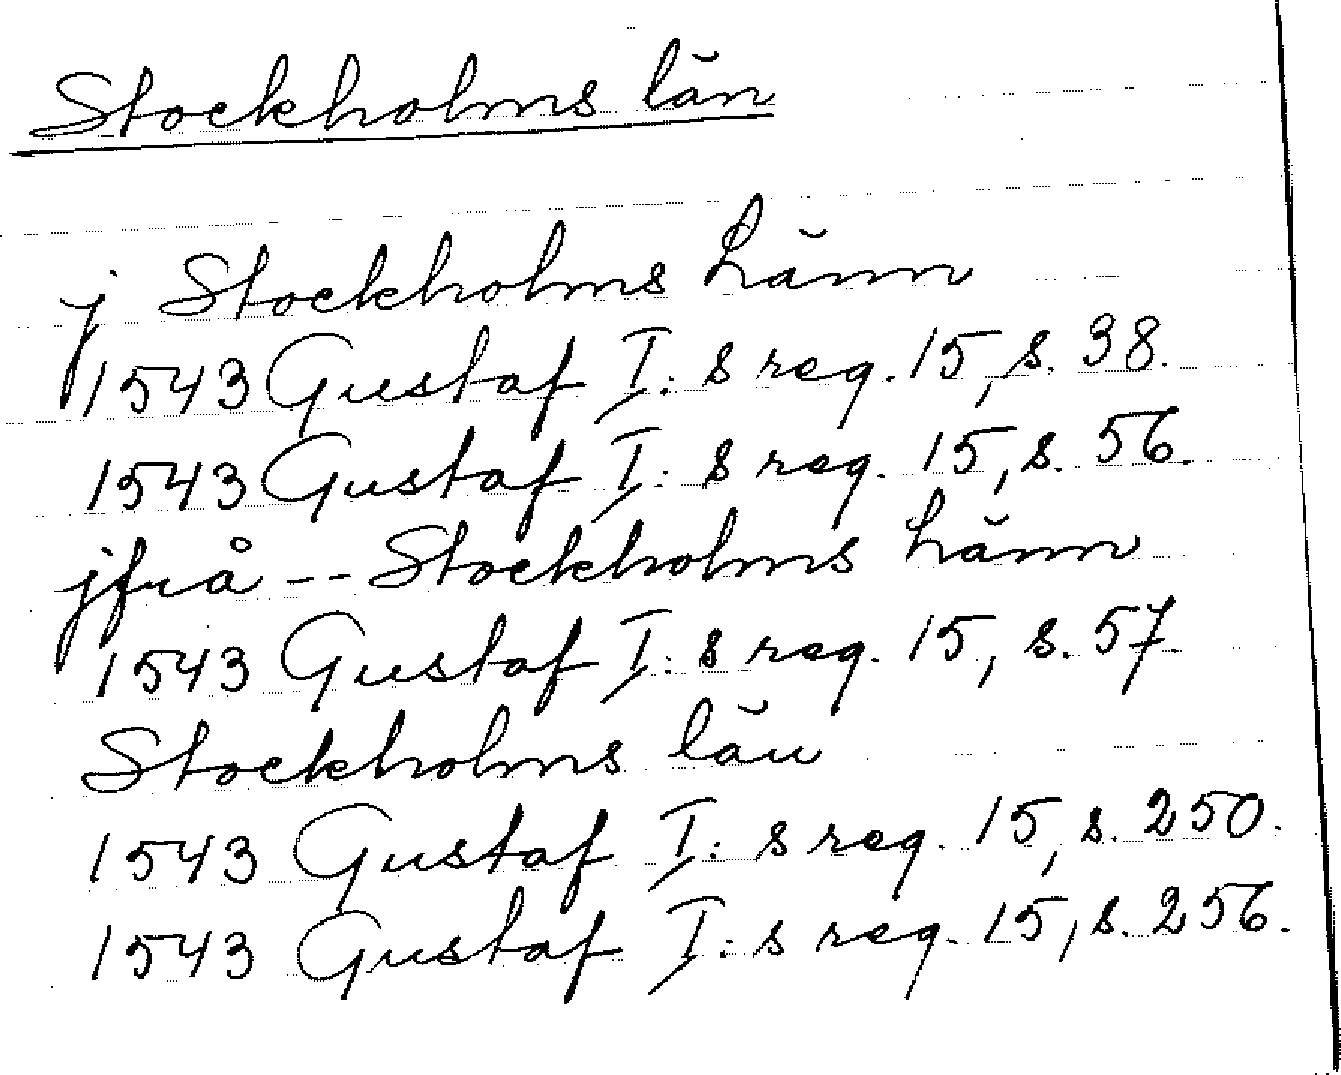 Stockholms län
j Stockholms Länn
1543 Gustaf I: s reg. 15, s. 38.
1543 Gustaf I: s reg. 15, s. 56.
jfrå -- Stockholms Länn
1543 Gustaf I: s reg. 15, s. 57
Stockholms län
1543 Gustaf I: s reg. 15, s. 250.
1543 Gustaf I: s reg. 15, s. 256.